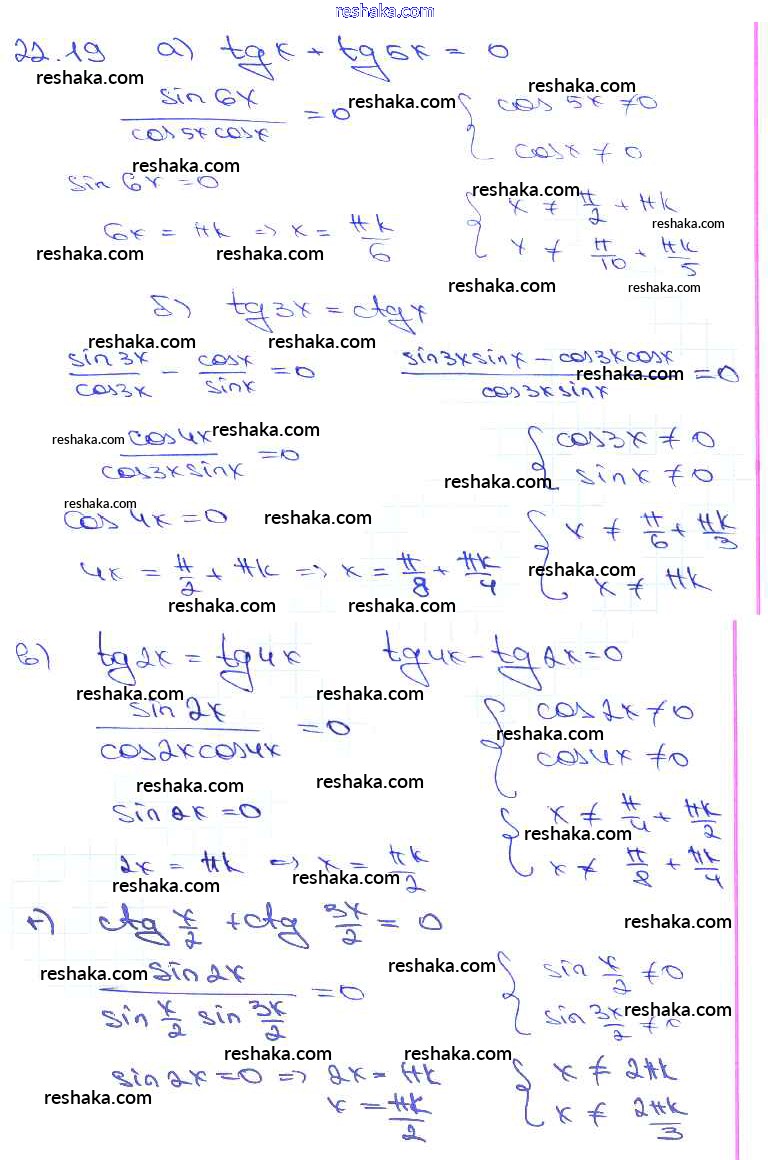 reshaka.com
22.19 а) tg x + tg 5x = 0
reshaka.com reshaka.com reshaka.com
sin6x / cos5x cosx = 0 { cos 5x ≠ 0
reshaka.com cosx ≠ 0
sin 6x = 0 reshaka.com
6x = πk => x = πk/6 { x ≠ π/2 + πk
reshaka.com
reshaka.com reshaka.com x ≠ π/10 + πk/5
reshaka.com reshaka.com
б) tg 3x = ctg x
reshaka.com reshaka.com
sin3x/cos3x - cosx/sinx = 0 (sin3x sinx - cos3x cosx)/(cos3x sinx) = 0
reshaka.com
reshaka.com reshaka.com
cos4x / cos3x sinx = 0 { cos3x ≠ 0
sinx ≠ 0
reshaka.com reshaka.com
cos 4x = 0 reshaka.com
4x = π/2 + πk => x = π/8 + πk/4 { x ≠ π/6 + πk/3
reshaka.com x ≠ πk
reshaka.com reshaka.com
в) tg 2x = tg 4x tg 4x - tg 2x = 0
reshaka.com reshaka.com
sin 2x / cos2x cos4x = 0 { cos 2x ≠ 0
reshaka.com
cos4x ≠ 0
reshaka.com reshaka.com
sin 2x = 0
2x = πk => x = πk/2 { x ≠ π/4 + πk/2
reshaka.com
x ≠ π/8 + πk/4
reshaka.com reshaka.com
г) ctg x/2 + ctg 3x/2 = 0
reshaka.com
reshaka.com reshaka.com
sin 2x / sin x/2 sin 3x/2 = 0 { sin x/2 ≠ 0
sin 3x/2 ≠ 0
reshaka.com
reshaka.com reshaka.com
sin 2x = 0 => 2x = πk { x ≠ 2πk
x = πk/2 x ≠ 2πk/3
reshaka.com reshaka.com